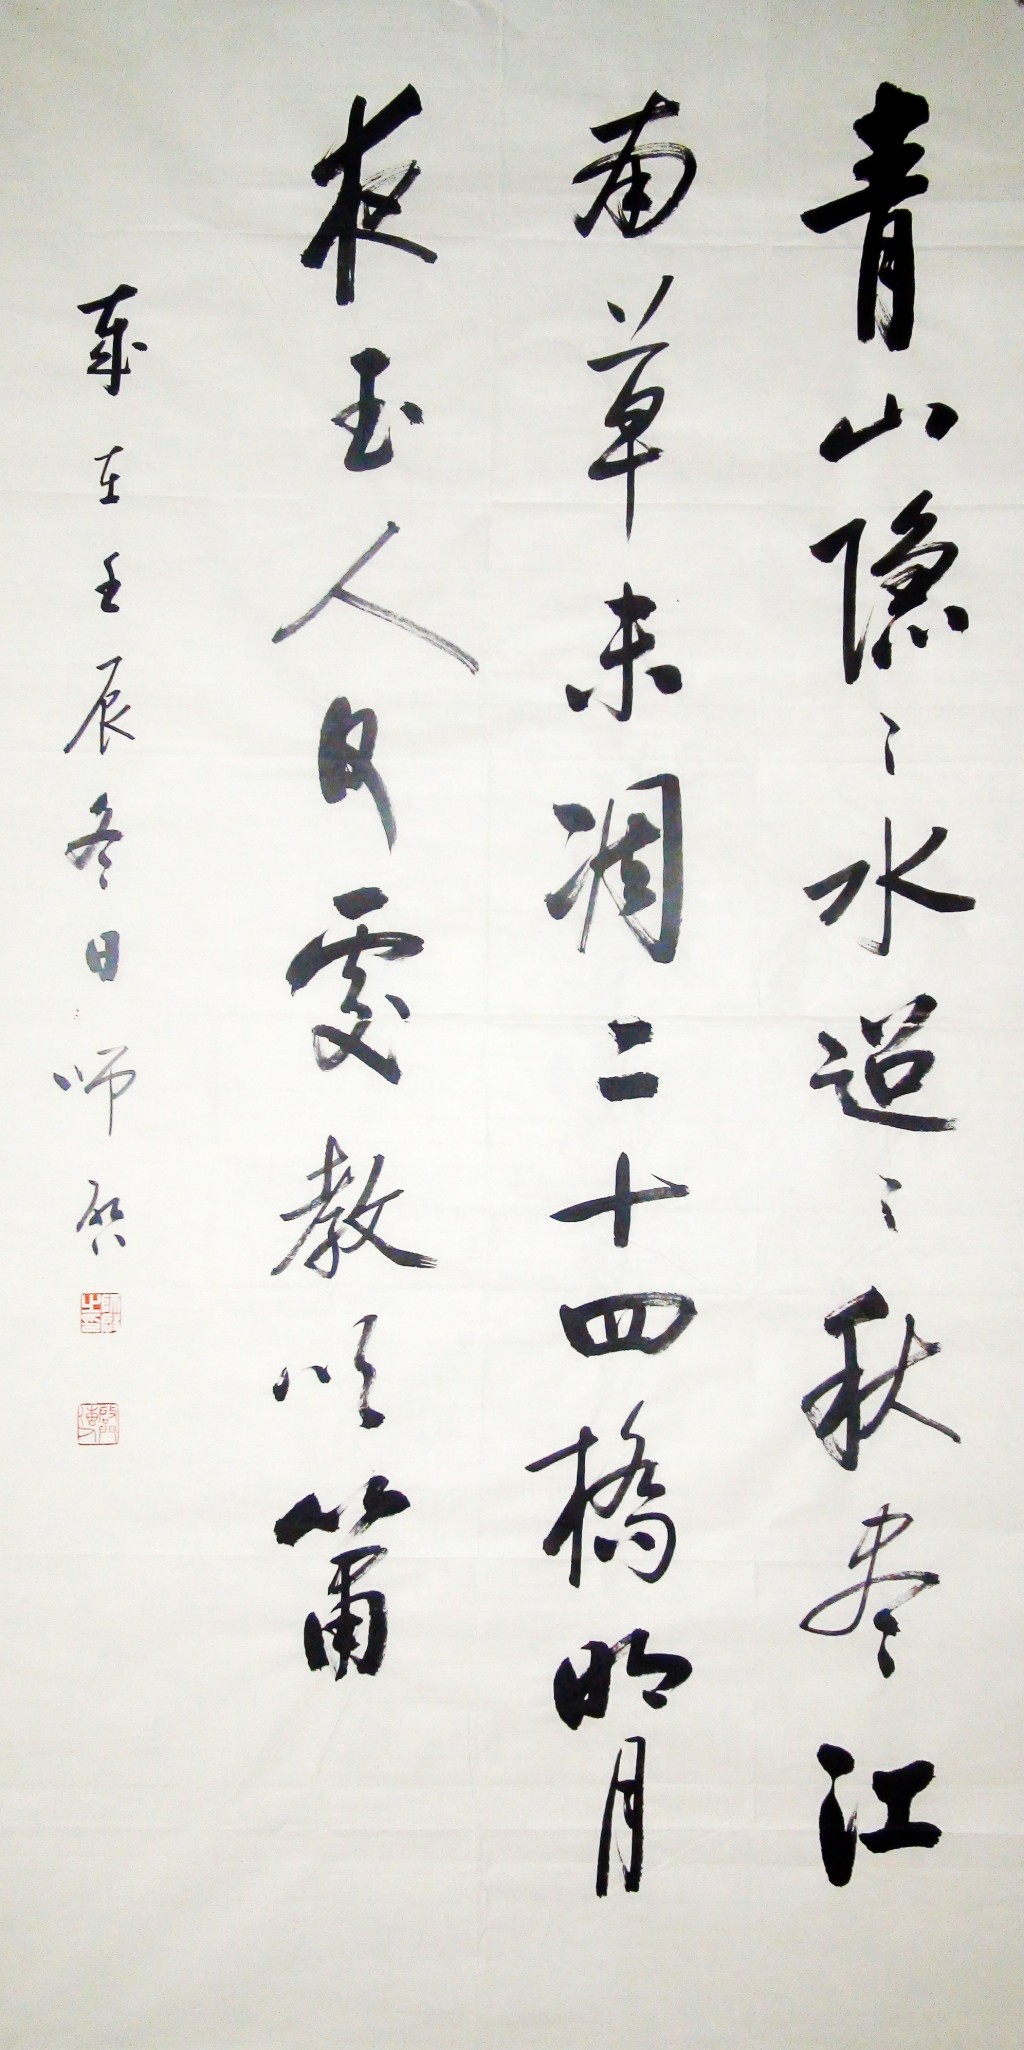 青山隐〻水迢〻秋尽江
南草未凋二十四橋明月
夜玉人何處教吹簫
歲在壬辰冬日师